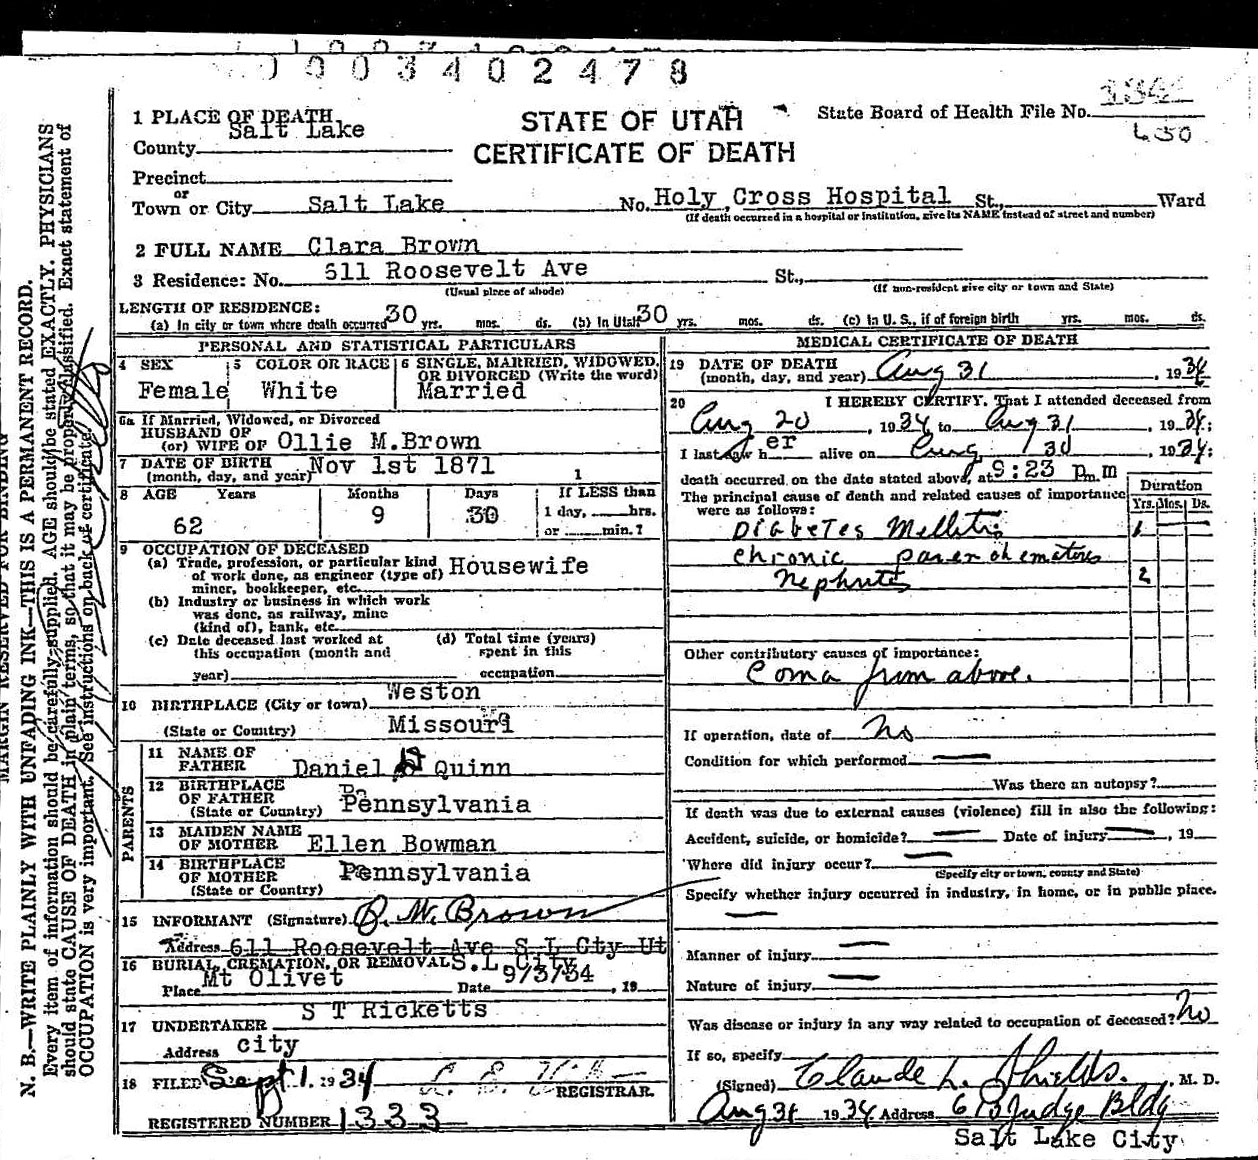 0003402478
1 PLACE OF DEATH
STATE OF UTAH
State Board of Health File No.
CERTIFICATE OF DEATH
County Salt Lake
Precinct
or
Town or City Salt Lake No. Holy Cross Hospital St., Ward
(If death occurred in a hospital or institution, give its NAME instead of street and number)
2 FULL NAME Clara Brown
3 Residence: No. 611 Roosevelt Ave St.,
(Usual place of abode) (If non-resident give city or town and State)
LENGTH OF RESIDENCE:
(a) In city or town where death occurred 30 yrs. mos. ds. (b) In Utah 30 yrs. mos. ds. (c) In U. S., if of foreign birth yrs. mos. ds.
PERSONAL AND STATISTICAL PARTICULARS
4 SEX Female
5 COLOR OR RACE White
6 SINGLE, MARRIED, WIDOWED, OR DIVORCED (Write the word) Married
6a If Married, Widowed, or Divorced
HUSBAND OF
(or) WIFE OF Ollie M.Brown
7 DATE OF BIRTH Nov 1st 1871
(month, day, and year) 1
8 AGE Years Months Days If LESS than
62 9 30 1 day, hrs.
or min.?
9 OCCUPATION OF DECEASED
(a) Trade, profession, or particular kind
of work done, as engineer (type of) Housewife
miner, bookkeeper, etc.
(b) Industry or business in which work
was done, as railway, mine
(kind of), bank, etc.
(c) Date deceased last worked at (d) Total time (years)
this occupation (month and spent in this
year) occupation
10 BIRTHPLACE (City or town) Weston
(State or Country) Missouri
PARENTS
11 NAME OF
FATHER Daniel Quinn
12 BIRTHPLACE
OF FATHER Pennsylvania
(State or Country)
13 MAIDEN NAME
OF MOTHER Ellen Bowman
14 BIRTHPLACE
OF MOTHER Pennsylvania
(State or Country)
15 INFORMANT (Signature) O. M. Brown
Address 611 Roosevelt Ave S L Cty Ut
16 BURIAL, CREMATION, OR REMOVAL S.L. City
Place Mt Olivet Date 9/3/34, 19
17 UNDERTAKER S T Ricketts
Address city
18 FILED Sept 1. 1934
REGISTRAR.
REGISTERED NUMBER 1333
MEDICAL CERTIFICATE OF DEATH
19 DATE OF DEATH
(month, day, and year) Aug 31, 1934
20 I HEREBY CERTIFY, That I attended deceased from
Aug 20, 1934 to Aug 31, 1934;
I last saw her alive on Aug 30, 1934;
death occurred on the date stated above, at 9:23 p.m
The principal cause of death and related causes of importance
were as follows:
Duration
Yrs. Mos. Ds.
Diabetes Mellitis 1
Chronic parenchematous
Nephritis 2
Other contributory causes of importance:
Coma from above.
If operation, date of No
Condition for which performed
Was there an autopsy?
If death was due to external causes (violence) fill in also the following:
Accident, suicide, or homicide? Date of injury, 19
Where did injury occur?
(Specify city or town, county and State)
Specify whether injury occurred in industry, in home, or in public place.
Manner of injury
Nature of injury
Was disease or injury in any way related to occupation of deceased? No
If so, specify
(Signed) Claude L. Shields., M. D.
Aug 31 1934 Address 613 Judge Bldg
Salt Lake City
MARGIN RESERVED FOR BINDING
N. B.—WRITE PLAINLY WITH UNFADING INK—THIS IS A PERMANENT RECORD.
Every item of information should be carefully supplied. AGE should be stated EXACTLY. PHYSICIANS
should state CAUSE OF DEATH in plain terms, so that it may be properly classified. Exact statement of
OCCUPATION is very important. See instructions on back of certificate.